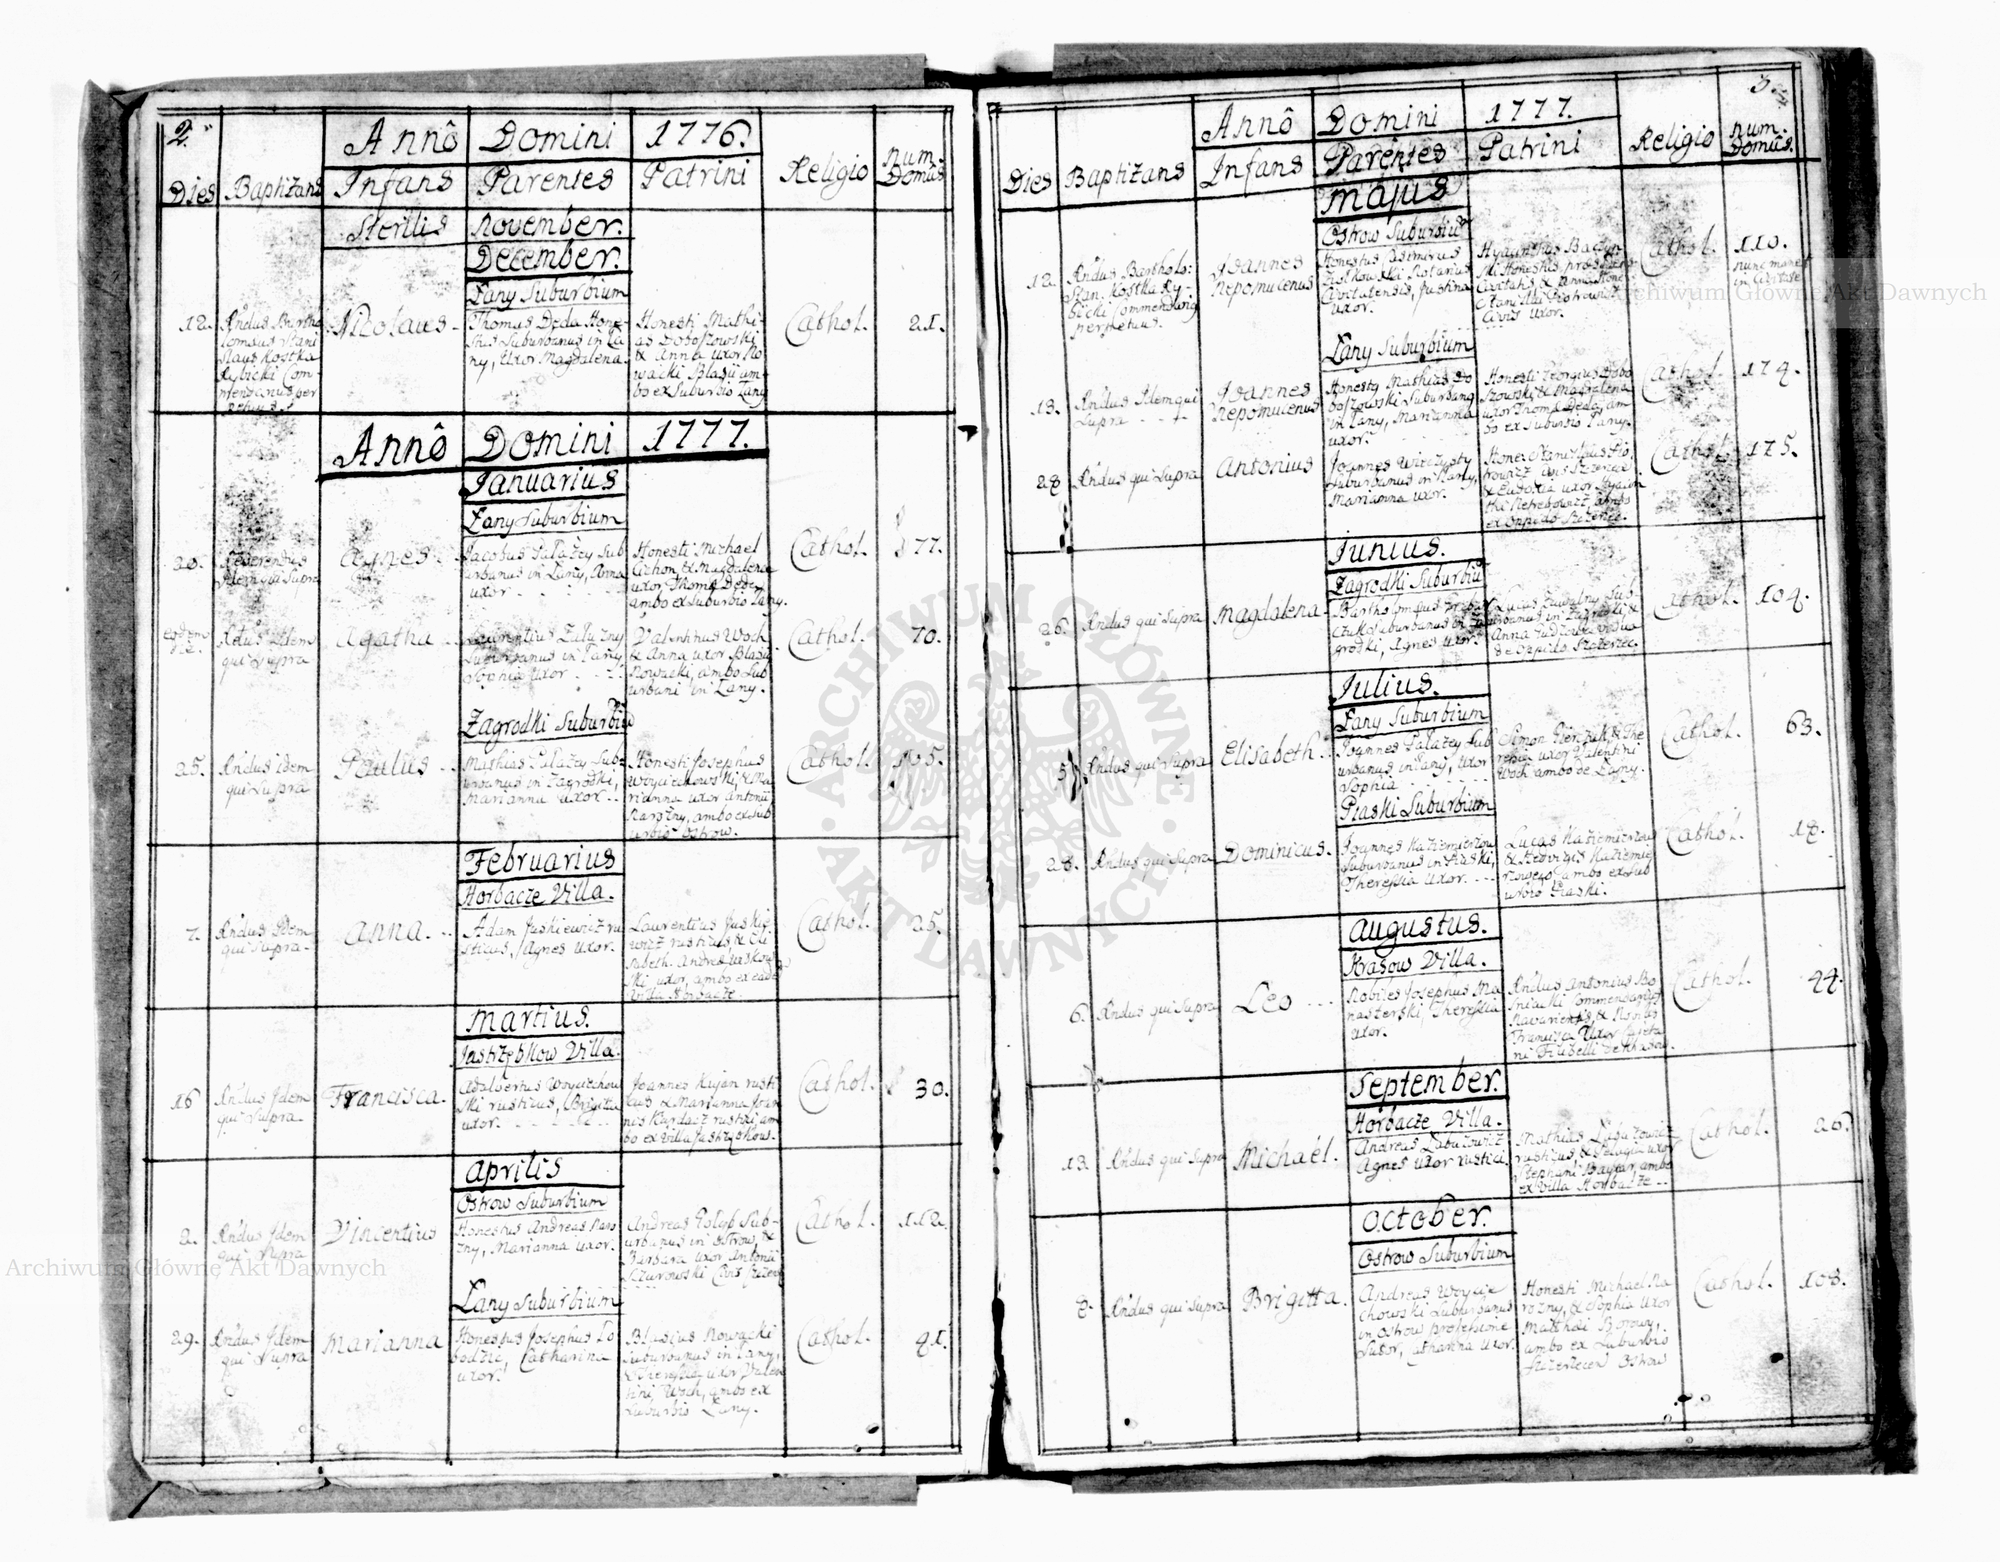 2.
Annô Domini 1776.
Dies Baptizans Infans Parentes Patrini Religio Num. Domus
Sterilis November.
December.
Łany Suburbium
12. Rndus Bartho
lomæus Stani
slaus Kostka
Rybicki Com
mendarius per
petuus.
Nicolaus
Thomas Deda Hone-
stus Suburbanus in Ła
ny, Uxor Magdalena.
Honesti Mathi-
as Doboszowski
& Anna uxor No
wacki Blasii am-
bo ex Suburbio Łany
Cathol. 21.
Annô Domini 1777.
Januarius
Łany Suburbium
20. Reverendus
Idem qui Supra
Agnes
Jacobus Pałażey Sub
urbanus in Łany, Anna
uxor
Honesti Michael
Cichon & Magdalena
uxor Thomæ Deda
ambo ex Suburbio Łany.
Cathol. 77.
eadem
die.
Rdus Idem
qui Supra
Agatha
Laurentius Załuzny
Suburbanus in Łany,
Sophia Uxor
Valentinus Woch
& Anna uxor Blasii
Nowacki, ambo Sub
urbani in Łany.
Cathol. 70.
Zagrodki Suburbiu
25. Rndus Idem
qui Supra
Paulus
Mathias Pałażey Sub-
urbanus in Zagrodki,
Marianna uxor
Honesti Josephus
Woyciechowski, & Ma
rianna uxor Antonii
Narozny, ambo ex Sub
urbio Ostrow.
Cathol. 105.
Februarius
Horbacze Villa.
7. Rndus Idem
qui Supra
Anna.
Adam Juskiewicz ru
sticus, Agnes uxor.
Laurentius Juskie-
wicz rusticus, & Eli
sabeth Andreæ
uxor, ambo ex ead
Villa Horbacze
Cathol. 25.
Martius.
Jastrzębkow Villa.
16 Rndus Idem
qui Supra
Francisca.
Adalbertus Woyciechow
ski rusticus, Brigitta
uxor.
Joannes Kijan rusti
cus & Marianna Joan
nis Kardasz rustici, am
bo ex Villa Jastrzębkow.
Cathol. 30.
Aprilis
Ostrow Suburbium
2. Rndus Idem
qui Supra
Vincentius
Honestus Andreas Naro
zny, Marianna uxor.
Andreas Gołąb Sub-
urbanus in Ostrow, &
Barbara uxor Antonii
Szczurowski Civis
Cathol. 112.
Łany Suburbium
29. Rndus Idem
qui Supra
Marianna
Honestus Josephus Ło
bodzic, Catharina
uxor.
Blasius Nowacki
Suburbanus in Łany,
& Theresia uxor Valen
tini Woch, ambo ex
Suburbio Łany.
Cathol. 91.
3.
Annô Domini 1777.
Dies Baptizans Infans Parentes Patrini Religio Num. Domûs.
Majus
Ostrow Suburbiu
12. Rndus Bartholo:
Stan. Kostka Ry-
bicki Commendariꝰ
perpetuus.
Joannes
Nepomucenus
Honestus Casimirus
Ziółkowski Notarius
Civitatensis, Justina
uxor.
Hyacinthus Baczyn
ski Honestus
Civitatis & Anna Hone
Stanislai Piotrowicz
Civis uxor.
Cathol. 110.
nunc manet
in Civitate
Łany Suburbium
13. Rndus Idem qui
Supra
Joannes
Nepomucenus
Honestꝰ Mathias Do
boszowski Suburbanꝰ
in Łany, Marianna
uxor.
Honesti Georgius Dobo
szowski, & Magdalena
uxor Thomæ Deda, am
bo ex Suburbio Łany.
Cathol. 174.
28 Rndus qui Supra
Antonius
Joannes Wieczysty
Suburbanus in Łany,
Marianna uxor.
Hones. Stanislaus Pio
trowicz Civis Szczerzec
& Eudoxia uxor Hyacin
thi Pietrzkowicz, ambo
ex Oppido Szczerzec.
Cathol. 175.
Junius.
Zagrodki Suburbiu
26. Rndus qui Supra
Magdalena
Bartholomæus
czuk Suburbanus in Za
grodki, Agnes uxor.
Lucas Zawalny Sub
urbanus in Zagrodki &
Anna vidua
de Oppido Szczerzec.
Cathol. 104.
Julius.
Łany Suburbium
5. Rndus qui Supra
Elisabeth
Joannes Pałażey Sub
urbanus in Łany, uxor
Sophia
Simon Pierzak, & The
resia uxor Valentini
Woch ambo de Łany.
Cathol. 63.
Piaski Suburbium
28. Rndus qui Supra
Dominicus.
Joannes Kazimierzow
Suburbanus in Piaski,
Theressia uxor.
Lucas Kazimierzow
& Hedvigis Kazimie
rzowa, ambo ex Sub
urbio Piaski.
Cathol. 18.
Augustus.
Krasow Villa.
6. Rndus qui Supra
Leo
Nobiles Josephus Ma
nasterski, Theressia
uxor.
Rndus Antonius Bo
śniacki Commendariꝰ
Navariensis, & Nobilis
Francisca Uxor Cajeta
ni de Krasow.
Cathol. 44.
September.
Horbacze Villa.
13. Rndus qui Supra
Michaël.
Andreas Łabuzowicz
Agnes uxor rustici.
Mathias Łabuzowicz
rusticus, & Pelagia uxor
Stephani ambo
ex villa Horbacze
Cathol. 26.
October.
Ostrow Suburbium
8. Rndus qui Supra
Brigitta.
Andreas Woycie
chowski Suburbanus
in Ostrow professione
Sutor, Catharina uxor.
Honesti Michaël Na
rozny, & Sophia uxor
Matthæi Borowy,
ambo ex Suburbio
Szczerzecen Ostrow
Cathol. 108.
Archiwum Główne Akt Dawnych
Archiwum Główne Akt Dawnych
ARCHIWUM GŁÓWNE AKT DAWNYCH